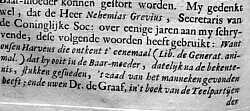 Baar-moeder konnen gestort worden. My gedenkt
wel, dat de Heer Nehemias Grevius, Secretaris van
de Coninglijke Soc: over eenige jaren aan my schry-
vende, dese volgende woorden heeft gebruikt: Want
onsen Harveus die ontkent t'eenemaal (Lib. de Generat. ani-
mal.) dat hy ooit in de Baar-moeder, datelijk na de bekente-
nis, stukken gesneden, 't zaad van het manneken gevonden
heeft; ende uwen Dr. de Graaf, in't boek van de Teelpartijen